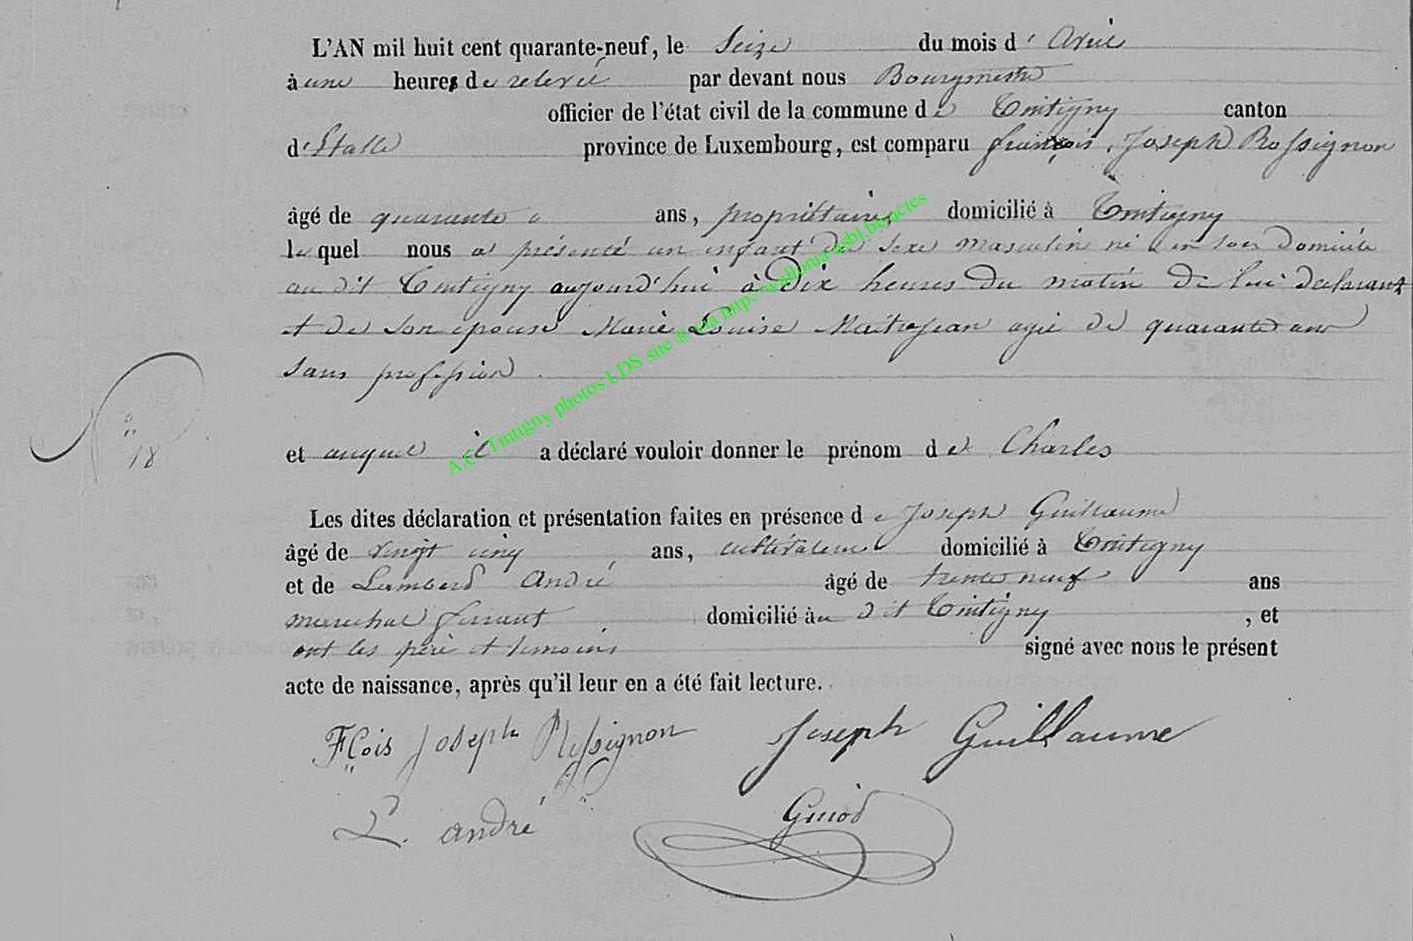 L'AN mil huit cent quarante-neuf, le Seize du mois d' Avril
à une heures de relevée par devant nous Bourgmestre
officier de l'état civil de la commune de Tintigny canton
d'Etalle province de Luxembourg, est comparu françois Joseph Rossignon
âgé de quarante ans, propriétaire domicilié à Tintigny
le quel nous a présenté un enfant du sexe masculin né en son domicile
au dit Tintigny aujourd'hui à dix heures du matin de lui declarant
et de son épouse Marie Louise Maitrejean agée de quarante ans
sans profession.
18
et auquel il a déclaré vouloir donner le prénom de Charles
Les dites déclaration et présentation faites en présence de Joseph Guillaume
âgé de vingt cinq ans, cultivateur domicilié à Tintigny
et de Lambert André âgé de trente neuf ans
marechal ferrant domicilié au dit Tintigny, et
ont les père et temoins signé avec nous le présent
acte de naissance, après qu'il leur en a été fait lecture.
Fçois Joseph Rossignon Joseph Guillaume
L. andré Guiod
A.C. Tintigny photos LDS site ® via http://wallonia-asbl.be/actes